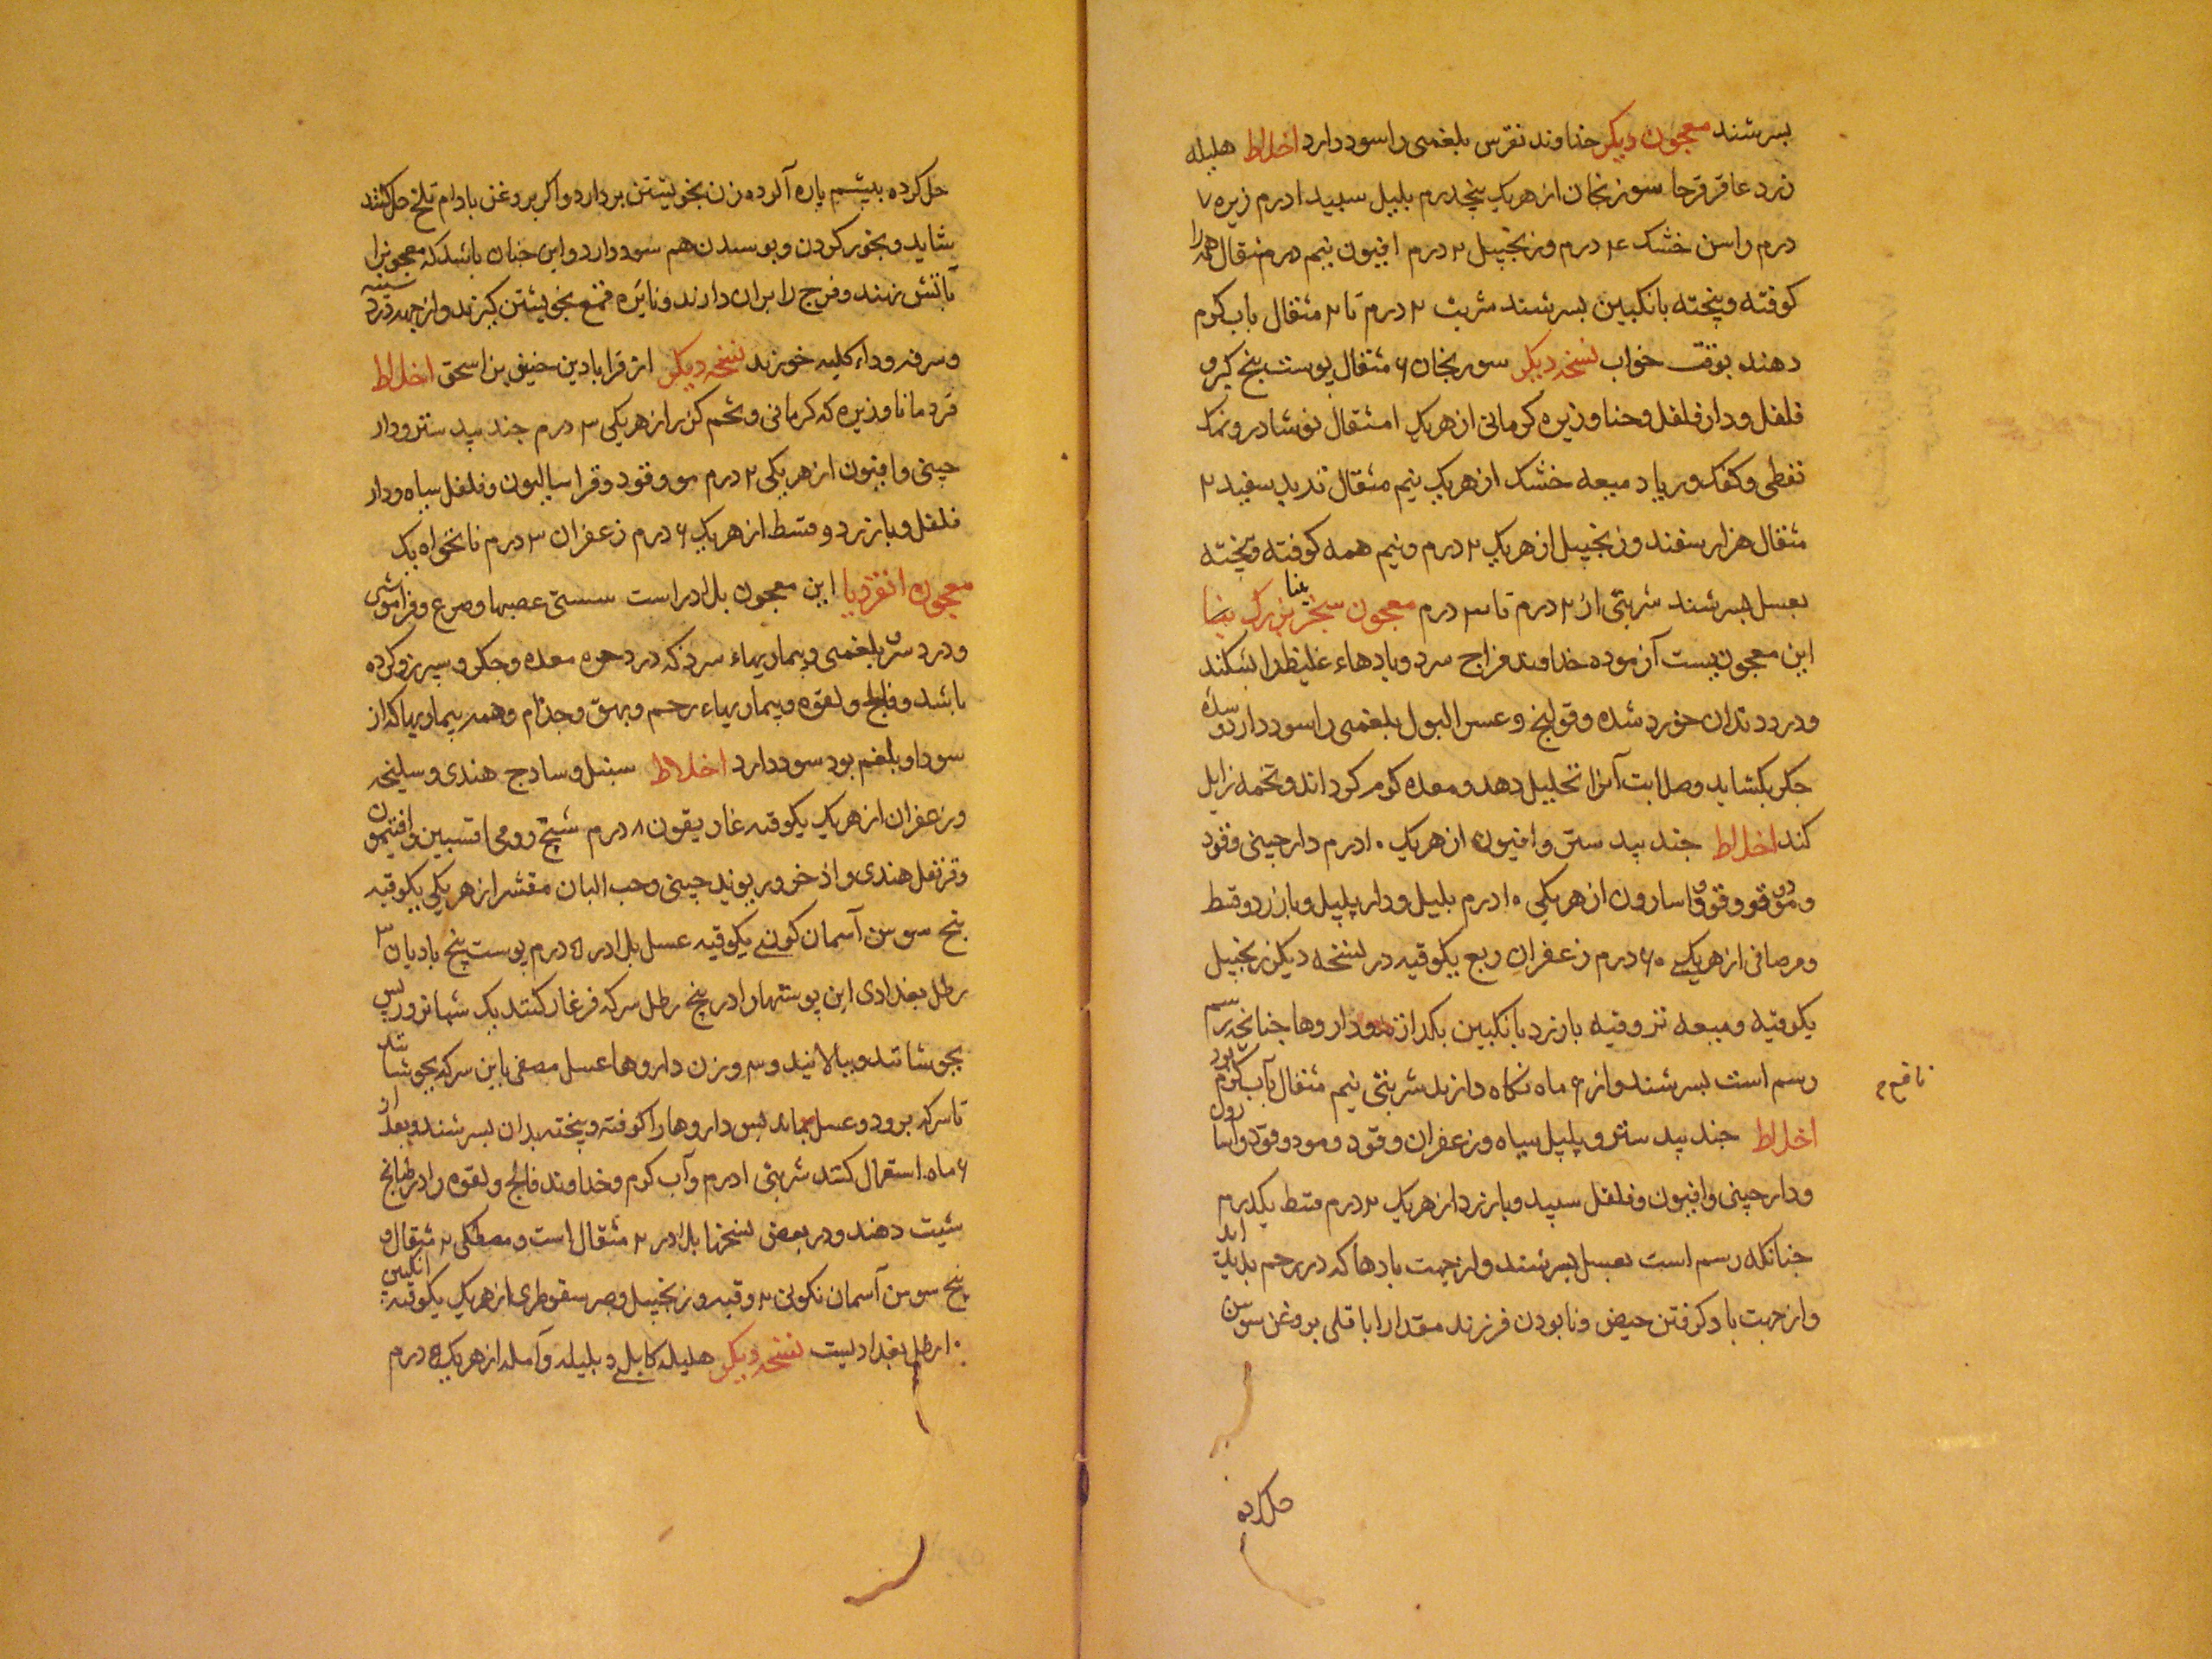 بسرشند معجون دیکر خداوند نقرس بلغمی را سود دارد اخلاط هلیله
زرد عاقرقرحا سورنجان از هریک پنجدرم بلیل سپید ا درم زیره ۷
درم واسن خشک ۴ درم وزنجپیل ۲ درم افیون نیم درم مثقال همه را
کوفته وپخته بانکبین بسرشند شربت ۲ درم تا ۲ مثقال باب کرم
دهند بوقت خواب نسخه دیکر سورنجان ۶ مثقال پوست بیخ کبر و
فلفل ودارفلفل وحنا وزیره کرمانی از هریک ا مثقال نوشادر ونمک
نفطی وکفک دریا و میعه خشک از هریک نیم مثقال تدبد سفید ۲
مثقال هزار سفند وزنجپیل از هریک ۲ درم ونیم همه کوفته وپخته
بعسل بسرشند شربتی از ۲ درم تا ۳ درم معجون سجزینا بزرک
این معجونیست آزموده خداوند مزاج سرد وبادهاء غلیظ را بشکند
ودرد دندان خورد شده وقولنج وعسر البول بلغمی را سود دارد وسده
جکر بکشاید وصلابت آنرا تحلیل دهد ومعده کرم کرداند وتخمه زایل
کند اخلاط جند بید ستر وافیون از هریک ۱۰ درم دارچینی وفود
ومو ودوقو وفو واسارون از هریکی ۱۰ درم بلیل ودار پلپل وبارزد وقسط
ومرصافی از هریکے ۶۰ درم زعفران ربع یکوقیه در نسخه دیکر زنجپیل
یکوقیه ومیعه تر وقیه بارزد بانکبین بکدازند وداروها چنانچه رسم
رسم است بسرشند واز ۶ ماه نکاه دارند شربتی نیم مثقال بآب کرم بود
اخلاط جند بید ستر وپلپل سیاه وزعفران وفود ومو ودوقو واسارون
ودارچینی وافیون وفلفل سپید وبارزد از هریک ۲ درم قسط یکدرم
چنانکه رسم است بعسل بسرشند واز جهت بادها که در رحم بدید اید
واز جهت باد کرفتن حیض ونابودن فرزند مقدار باقلی بروغن سوسن
نافع م
حل کرده
حل کرده بپشم پاره آلوده زن بخویشتن بردارد واکر بروغن بادام تلخ حل کنند
شاید وبخور کردن وبوسیدن هم سود دارد واین چنان باشد که معجونرا
بآتش نهند وفرج را بران دارند ونایره قمع بخویشتن کیرند واز جهد درد سینه
وسرفه ودرد کلیه خورند نسخه دیکر از قرابادین حنین بن اسحق اخلاط
قردمانا وزیره که کرمانی وتخم کرز از هریکی ۳ درم جند بید ستر ودار
چینی وافیون از هریکی ۲ درم مو وفود وقراسالیون وفلفل سیاه ودار
فلفل وبارزد وقسط از هریک ۶ درم زعفران ۳ درم نانخواه یک
معجون انقردیا این معجون بلادر است سستی عصبها وصرع وفراموشی
ودرد سر بلغمی وبیماریهاء سرد که در دهره معده وجکر وسپرز وکرده
باشد وفالج ولقوه وبیماریهاء رحم وبهق وجذام وهمه بیماریها که از
سودا وبلغم بود سود دارد اخلاط سنبل وسادج هندی وسلیخه
وزعفران از هریک یکوقیه غاریقون ۸ درم شیح رومی افسنتین وافتیمون
وقرنفل هندی واذخر وریوند چینی وحب البان مقشر از هریکی یکوقیه
بیخ سوسن آسمان کونے یکوقیه عسل بلادر ۵ درم پوست بیخ بادیان ۳
رطل بغدادی این پوستها را در پنج رطل سرکه فرغار کنند یک شبانروز پس
بجوشانند وبپالایند وسه وزن داروها عسل مصفی باین سرکه بجوشانند
تا سرکه برود وعسل بماند پس داروها را کوفته وبیخته بدان بسرشند وبعد از
۶ ماه استعمال کنند شربتی ا درم وآب کرم وخداوند فالج ولقوه را در طبیخ
شبت دهند ودر بعض نسخها بلادر ۲ مثقال است ومصطکی ۲ مثقال و
بیخ سوسن آسمان نکونی ۲ وقیه وزنجپیل وصبر سقوطری از هریک یکوقیه انکبین
۱۰ رطل بغدادیست نسخه دیکر هلیله کابلے وبلیله وآمله از هریک ۵ درم